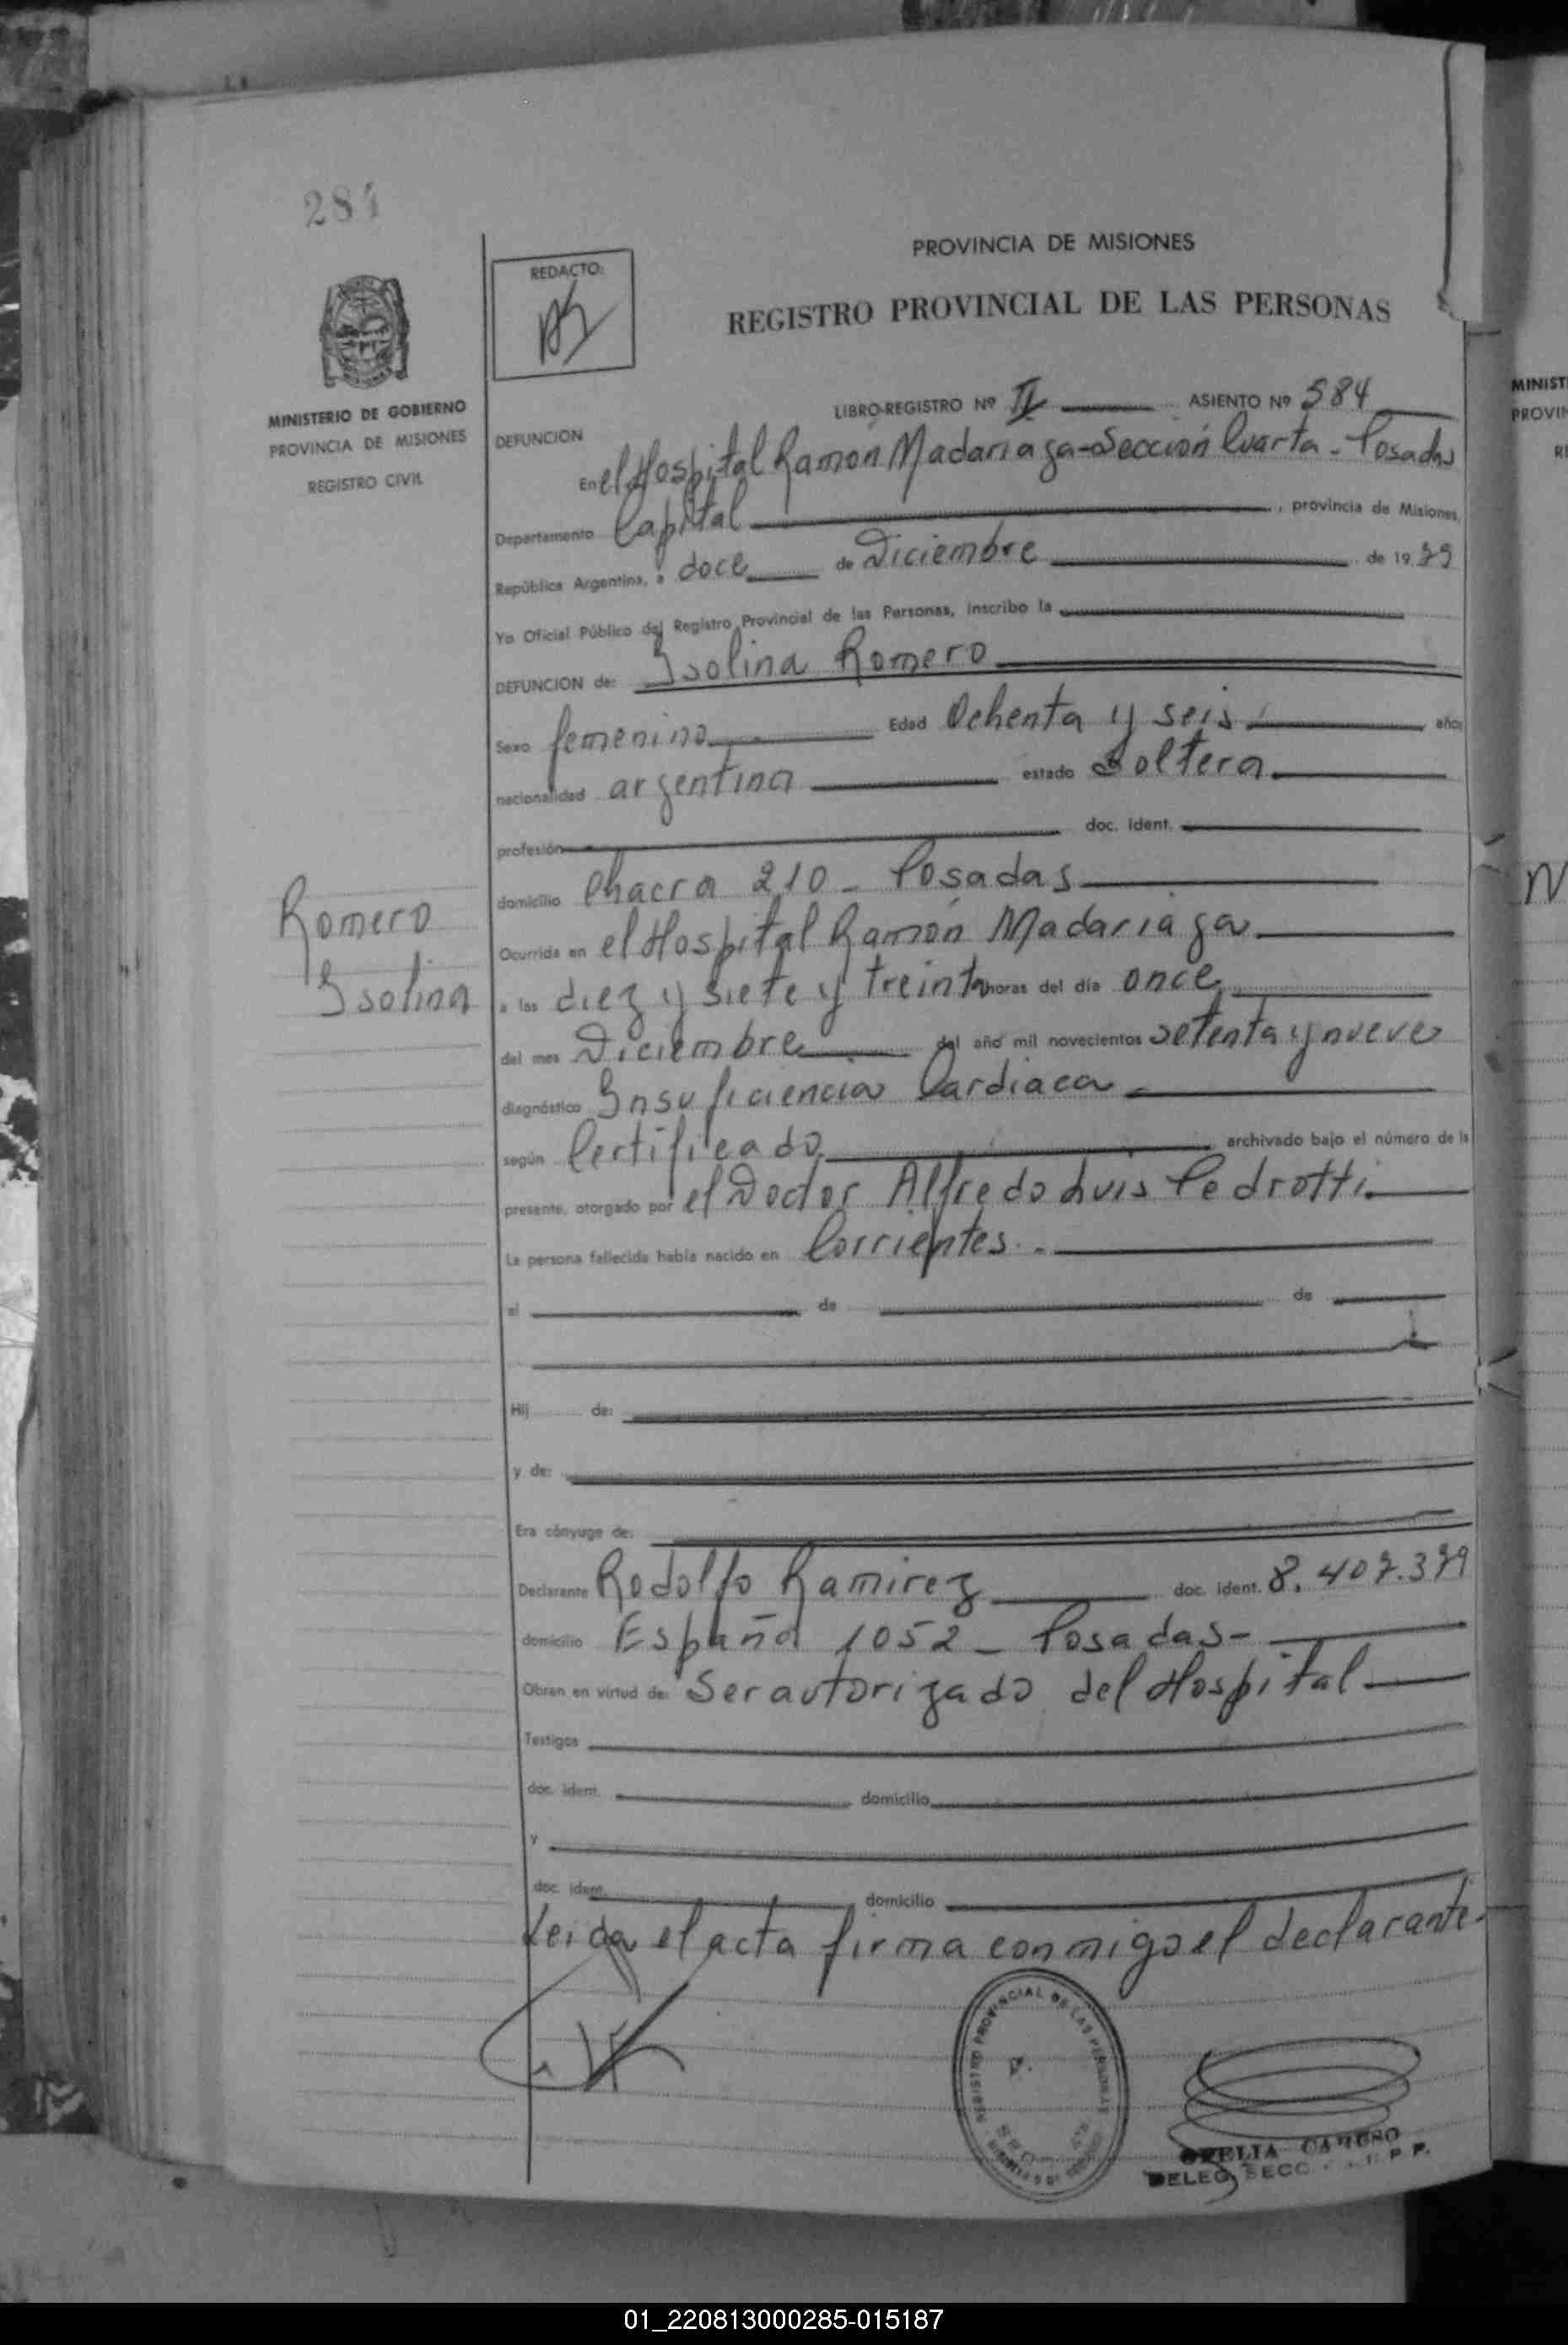 284
PROVINCIA DE MISIONES
REDACTO:
REGISTRO PROVINCIAL DE LAS PERSONAS
MINISTERIO DE GOBIERNO
PROVINCIA DE MISIONES
REGISTRO CIVIL
LIBRO-REGISTRO Nº II ASIENTO Nº 584
DEFUNCION
En el Hospital Ramón Madariaga - Sección Cuarta - Posadas
Departamento Capital, provincia de Misiones,
República Argentina, a doce de Diciembre de 1979
Yo Oficial Público del Registro Provincial de las Personas, inscribo la
DEFUNCION de: Isolina Romero
Sexo femenino Edad Ochenta y seis años
nacionalidad argentina estado Soltera
profesión doc. ident.
domicilio Chacra 210 - Posadas
Romero
Isolina
Ocurrida en el Hospital Ramón Madariaga
a las diez y siete y treinta horas del día once
del mes Diciembre del año mil novecientos setenta y nueve
diagnóstico Insuficiencia Cardiaca
según Certificado archivado bajo el número de la
presente, otorgado por el Doctor Alfredo Luis Pedrotti
La persona fallecida había nacido en Corrientes
el de de
Hij de:
y de:
Era cónyuge de:
Declarante Rodolfo Ramirez doc. ident. 8.407.379
domicilio España 1052 - Posadas -
Obran en virtud de: Ser autorizado del Hospital
Testigos
doc. ident. domicilio
y
doc. ident. domicilio
Leida el acta firma conmigo el declarante.
REGISTRO PROVINCIAL DE LAS PERSONAS
OFELIA CARUSO
DELEG. SECC.
MINIST
PROVIN
RE
N
01_220813000285-015187